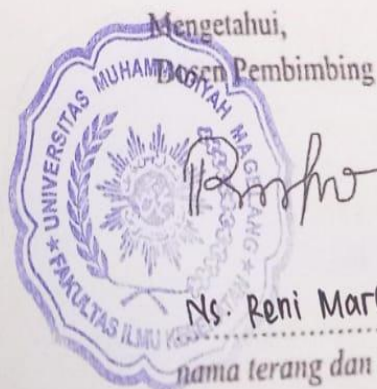 Mengetahui,
Dosen Pembimbing
UNIVERSITAS MUHAMMADIYAH MAGELANG
FAKULTAS ILMU
Ns. Reni Mar
nama terang dan